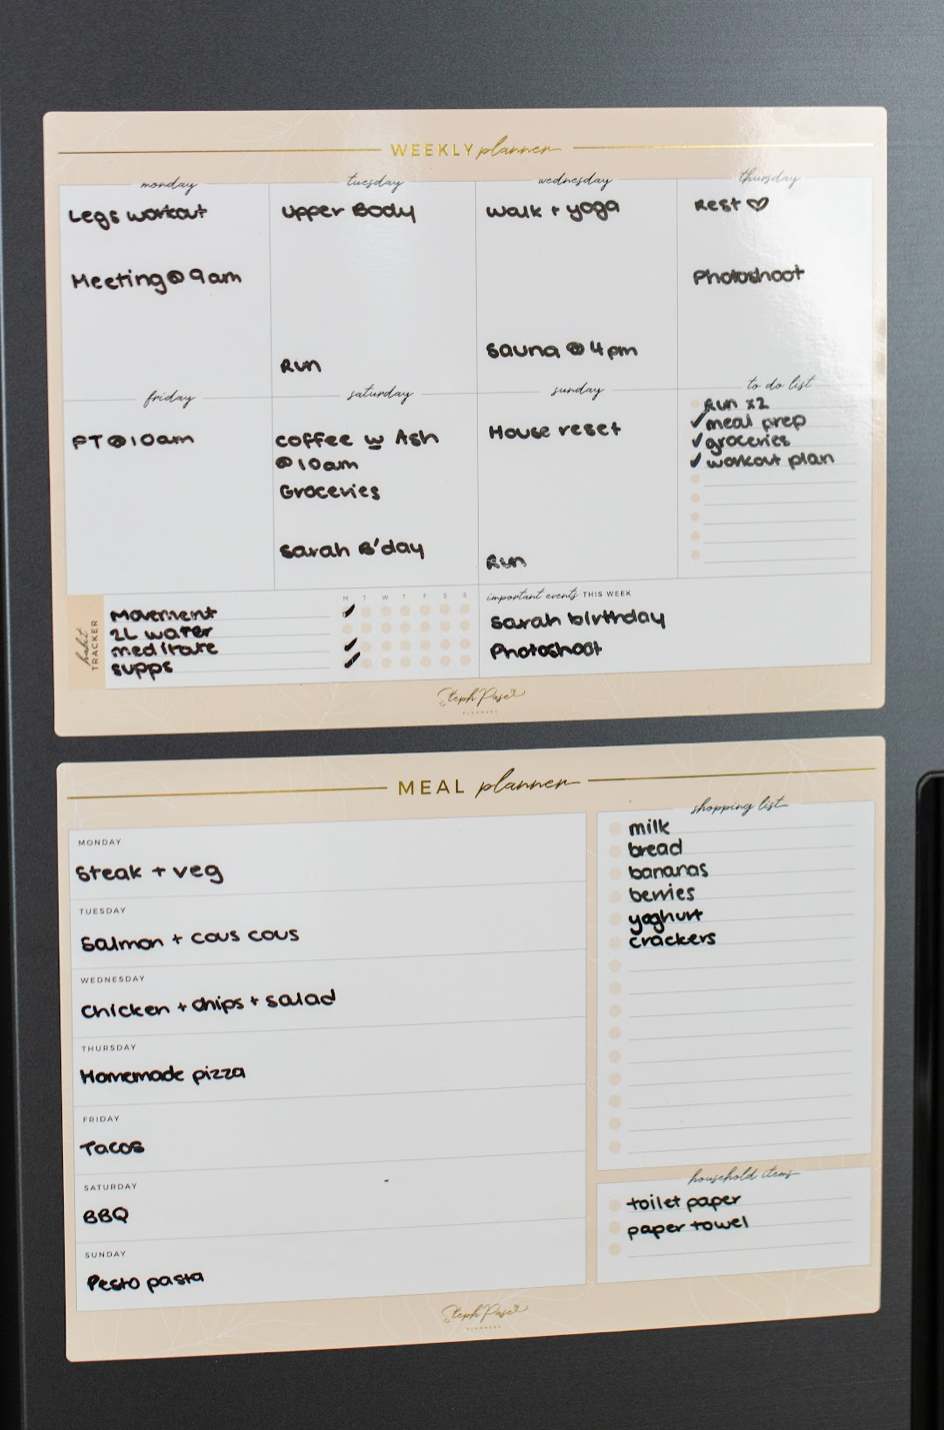 WEEKLY planner
monday
Legs workout
Meeting @ 9am
tuesday
Upper Body
Run
wednesday
Walk + yoga
Sauna @ 4pm
thursday
Rest ♡
Photoshoot
friday
PT @ 10am
saturday
coffee w Ash
@ 10am
Groceries
Sarah B'day
sunday
House reset
Run
to do list
Run x2
✓ meal prep
✓ groceries
✓ workout plan
habit
TRACKER
M T W T F S S
Movement ✓
2L water
meditate ✓
supps ✓
important events THIS WEEK
Sarah birthday
Photoshoot
Steph Pase
PLANNERS
MEAL planner
MONDAY
Steak + veg
TUESDAY
Salmon + cous cous
WEDNESDAY
Chicken + chips + salad
THURSDAY
Homemade pizza
FRIDAY
Tacos
SATURDAY
BBQ
SUNDAY
Pesto pasta
shopping list
milk
bread
bananas
berries
yoghurt
crackers
household items
toilet paper
paper towel
Steph Pase
PLANNERS